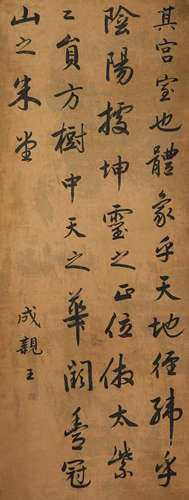 其宮室也體象乎天地經緯乎
陰陽據坤靈之正位倣太紫
之員方樹中天之華闕豐冠
山之朱堂
成親王